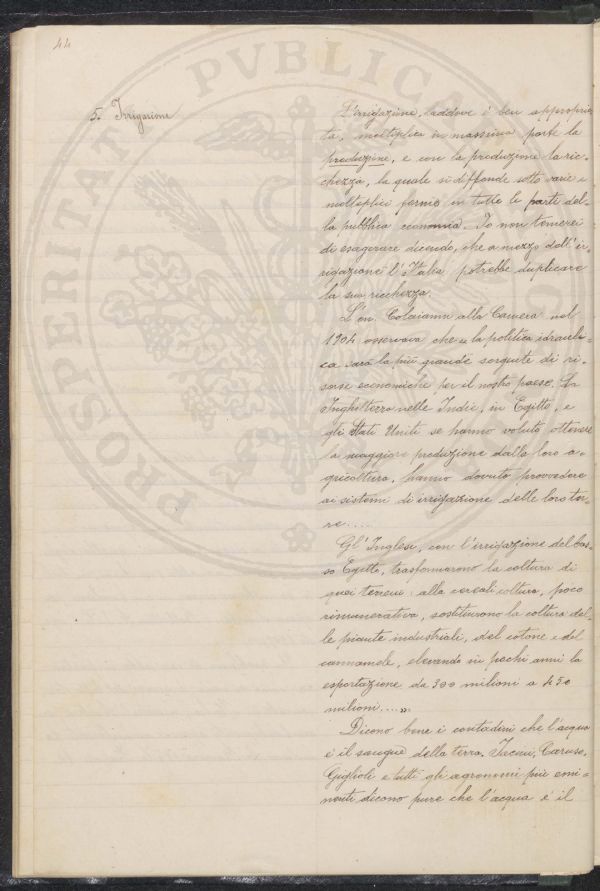 44
5. Irrigazione
L'irrigazione, laddove è ben appropria
ta, moltiplica in massima parte la
produzione, e con la produzione la ric-
chezza, la quale si diffonde sotto varie e
molteplici forme in tutte le parti del-
la pubblica economia. Io non temerei
di esagerare dicendo, che a mezzo dell'ir-
rigazione l'Italia potrebbe duplicare
la sua ricchezza.
L'on. Colaianni alla Camera nel
1904 osservava che "la politica idrauli-
ca sarà la più grande sorgente di ri-
sorse economiche per il nostro paese. La
Inghilterra nelle Indie, in Egitto, e
gli Stati Uniti se hanno voluto ottenere
la maggiore produzione dalla loro a-
gricoltura, hanno dovuto provvedere
ai sistemi di irrigazione delle loro ter-
re.....
Gl'Inglesi, con l'irrigazione del bas-
so Egitto, trasformarono la coltura di
quei terreni: alla cerealicoltura, poco
rimunerativa, sostituirono la coltura del-
le piante industriali, del cotone e del
cannamele, elevando in pochi anni la
esportazione da 300 milioni a 450
milioni....».
Dicono bene i contadini che l'acqua
è il sangue della terra. Jacini, Caruso,
Giglioli e tutti gli agronomi più emi-
nenti dicono pure che l'acqua è il
PROSPERITATI PVBLICAE